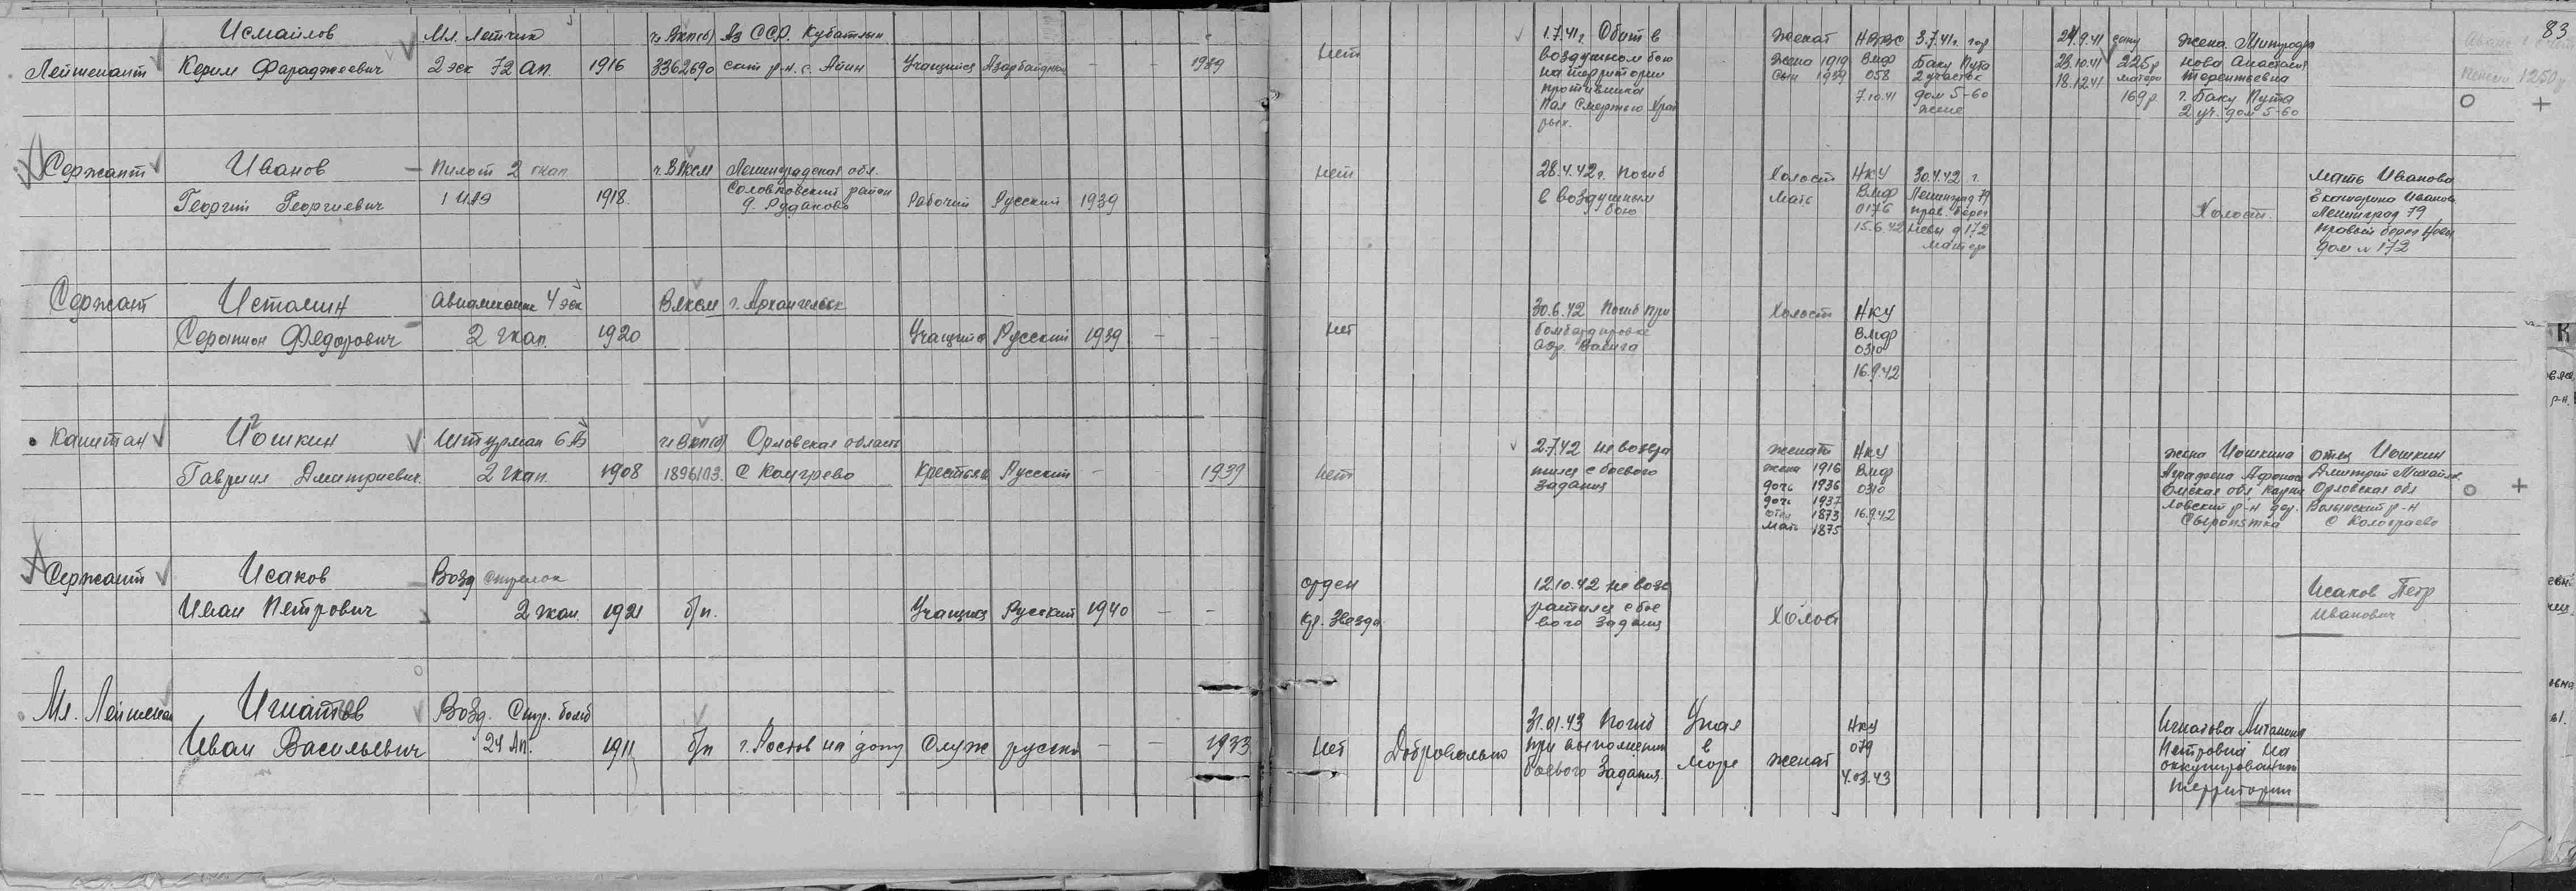 83
Лейтенант
Исмайлов
Керим Фараджевич
Мл. Летчик
2 эск 72 ап.
1916
чл ВКП(б)
3362690
Аз ССР. Кубатлин
ский р-н. с.
Учащийся
Азарбайджан
–
–
1939
Нет
1.7.41г. Сбит в
воздушном бою
на территории
противника
Пал Смертью Храб
рых.
Женат
Жена 1919
Сын 1939
НВВС
ВМФ
058
7.10.41
3.7.41г. гор
Баку Пута
2 участок
дом 5-60
жене
24.9.41
23.10.41
18.12.41
сыну
225р
матери
169р
жена
нова Анастасия
Терентьевна
г. Баку Пута
2 уч. дом 5-60
1250р
О +
Сержант
Иванов
Георгий Георгиевич
Пилот 2 гкап
1 ИАЭ
1918
ч. ВЛКСМ
Ленинградская обл.
район
д. Рудаково
Рабочий
Русский
1939
Нет
28.4.42г. Погиб
в воздушном
бою
Холост
Мать
НКУ
ВМФ
0176
15.6.42
30.4.42 г.
Ленинград 79
прав. берег
Невы д 172
матери
Холост.
Мать Иванова
Екатерина Иванов.
Ленинград 79,
правый берег Невы
дом № 172
Сержант
Истомин
Серапион Федорович
Авиамеханик 4 эск
2 гкап.
1920
ВЛКСМ
г. Архангельск
Учащийся
Русский
1939
–
–
Нет
30.6.42 Погиб при
бомбардировке
аэр. Ваенга
Холост
НКУ
ВМФ
0310
16.9.42
Капитан
Иошкин
Гавриил Дмитриевич
Штурман 6 АЭ
2 гкап.
1908
чл ВКП(б)
1896103.
Орловская область
с
Крестьян
Русский
–
1939
Нет
2.7.42 не возвра
тился с боевого
задания
женат
жена 1916
дочь 1936
дочь 1937
отец 1873
мать 1875
НКУ
ВМФ
0310
16.9.42
жена Иошкина
Омская обл
р-н дер.
Сыропятка
отец Иошкин
Дмитрий Михайл.
Орловская обл
р-н
с
О +
Сержант
Исаков
Иван Петрович
Возд стрелок
2 гкап.
1921
б/п.
Учащийся
Русский
1940
–
–
орден
Кр. Звезда
12.10.42 не возв
ратился с бое
вого задания
Холост
Исаков Петр
Иванович
Мл. Лейтенант
Игнатов
Иван Васильевич
Возд. Стр. бомб
24 АП.
1911
б/п
г. Ростов на дону
Служ
русский
–
–
1933
Нет
Добровольно
31.01.43 Погиб
при выполнении
боевого задания.
Упал
в
море
женат
НКУ
079
4.03.43
Игнатова Антонина
Петровна на
оккупированной
территории